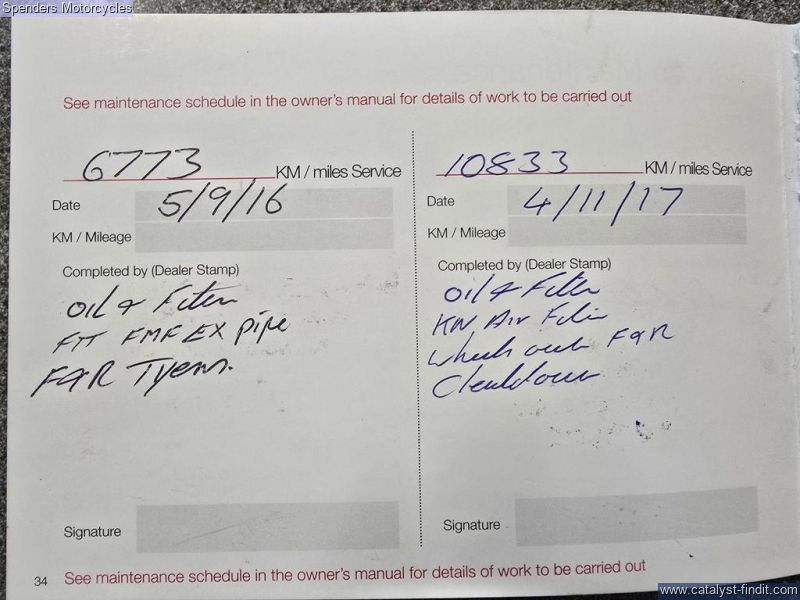 Spenders Motorcycles
See maintenance schedule in the owner's manual for details of work to be carried out
6773 KM / miles Service
Date 5/9/16
KM / Mileage
Completed by (Dealer Stamp)
Oil & Filter
FIT FMF EX Pipe
F&R Tyers.
Signature
10833 KM / miles Service
Date 4/11/17
KM / Mileage
Completed by (Dealer Stamp)
Oil & Filter
KN Air Filter
Wheels out F&R
Signature
34 See maintenance schedule in the owner's manual for details of work to be carried out
www.catalyst-findit.com